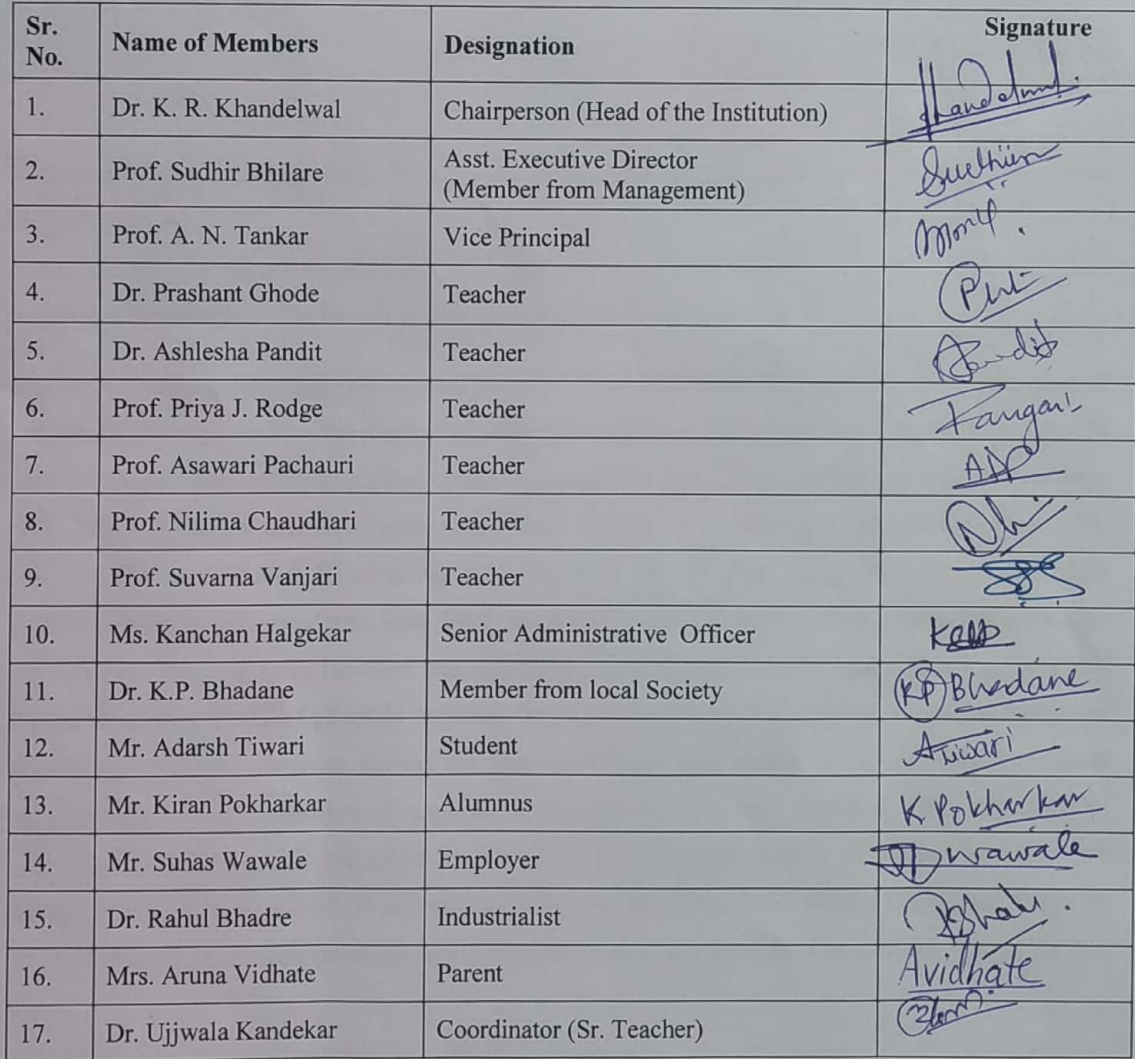 Sr. No. Name of Members Designation Signature
1. Dr. K. R. Khandelwal Chairperson (Head of the Institution)
2. Prof. Sudhir Bhilare Asst. Executive Director
(Member from Management)
3. Prof. A. N. Tankar Vice Principal
4. Dr. Prashant Ghode Teacher
5. Dr. Ashlesha Pandit Teacher
6. Prof. Priya J. Rodge Teacher
7. Prof. Asawari Pachauri Teacher
8. Prof. Nilima Chaudhari Teacher
9. Prof. Suvarna Vanjari Teacher
10. Ms. Kanchan Halgekar Senior Administrative Officer
11. Dr. K.P. Bhadane Member from local Society KP Bhadane
12. Mr. Adarsh Tiwari Student
13. Mr. Kiran Pokharkar Alumnus K Pokharkar
14. Mr. Suhas Wawale Employer wawale
15. Dr. Rahul Bhadre Industrialist
16. Mrs. Aruna Vidhate Parent Avidhate
17. Dr. Ujjwala Kandekar Coordinator (Sr. Teacher)